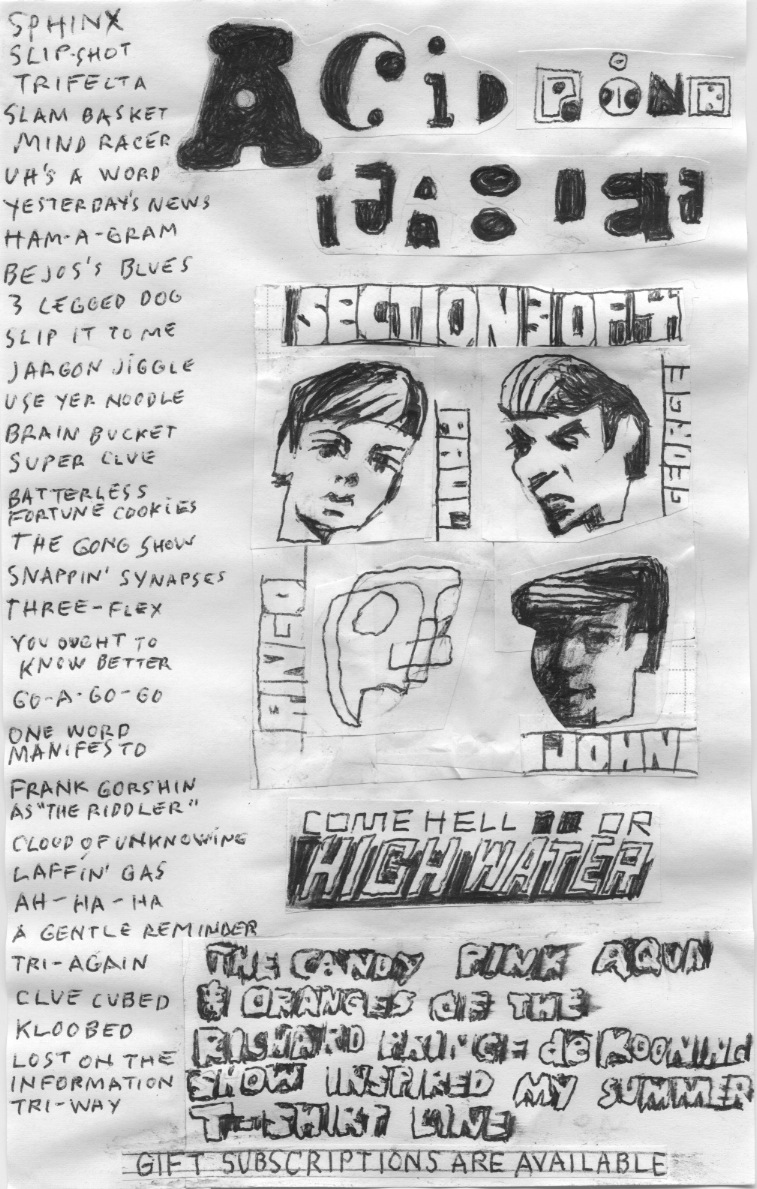 SPHINX
SLIP-SHOT
TRIFECTA
SLAM BASKET
MIND RACER
UH'S A WORD
YESTERDAY'S NEWS
HAM-A-GRAM
BEJOS'S BLUES
3 LEGGED DOG
SLIP IT TO ME
JARGON JIGGLE
USE YER NOODLE
BRAIN BUCKET
SUPER CLUE
BATTERLESS
FORTUNE COOKIES
THE GONG SHOW
SNAPPIN' SYNAPSES
THREE-FLEX
YOU OUGHT TO
KNOW BETTER
GO-A-GO-GO
ONE WORD
MANIFESTO
FRANK GORSHIN
AS "THE RIDDLER"
CLOUD OF UNKNOWING
LAFFIN' GAS
AH-HA-HA
A GENTLE REMINDER
TRI-AGAIN
CLUE CUBED
KLOOBED
LOST ON THE
INFORMATION
TRI-WAY
ACID
JOHN
COME HELL OR
HIGH WATER
THE CANDY PINK AQUA
& ORANGES OF THE
RICHARD PRINCE de KOONING
SHOW INSPIRED MY SUMMER
T-SHIRT LINE
GIFT SUBSCRIPTIONS ARE AVAILABLE